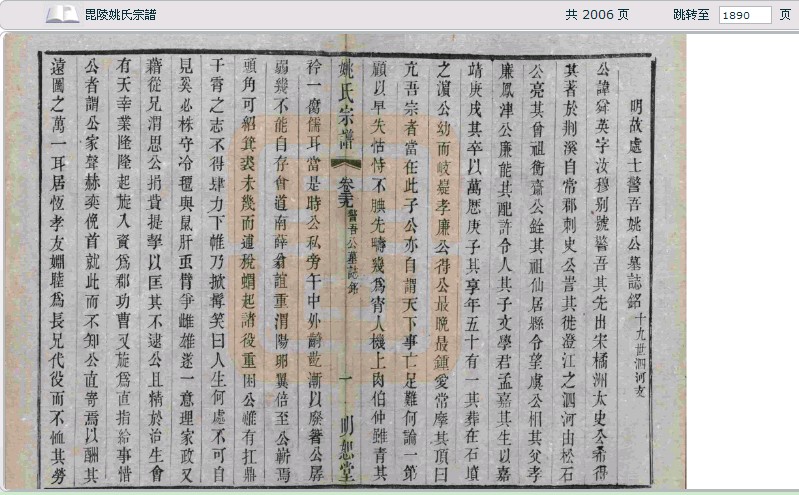 毘陵姚氏宗譜
共 2006 页
跳转至 1890 页
明故處士警吾姚公墓誌銘 十九世泗河支
公諱舜英字汝穆别號警吾其先出宋橘洲太史公希得
其著於荆溪自常郡刺史公訔其徙澄江之泗河由松石
公亮其曾祖衡齋公銓其祖仙居縣令望虞公相其父孝
廉鳳津公廉能其配許令人其子文學君孟嘉其生以嘉
靖庚戌其卒以萬厯庚子其享年五十有一其葬在石墳
之濵公幼而岐嶷孝廉公得公最晩最鍾愛常摩其頂曰
亢吾宗者當在此子公亦自謂天下事亡足難何論一第
顧以早失怙恃不腆先疇幾爲宵人機上肉伯仲雖青其
姚氏宗譜 卷三十 警吾公墓誌銘 一 明恕堂
衿一腐儒耳當是時公私旁午中外齮齕漸以縻箸公孱
弱幾不能自存會道南薛翁誼重渭陽卵翼倍至公嶄焉
頭角可紹箕裘未幾而逋稅蝟起諸役重困公雖有扛鼎
干霄之志不得肆力下帷乃掀髯笑曰人生何處不可自
見奚必株守冷氊與鼠肝虫臂爭雌雄遂一意理家政又
藉從兄渭思公捐貲提挈以匡其不逮公且精於治生會
有天幸業隆隆起旋入資爲郡功曹又旋爲直指給事惜
公者謂公家聲赫奕俛首就此而不知公直寄焉以酬其
遠圖之萬一耳居恆孝友婣睦爲長兄代役而不恤其勞